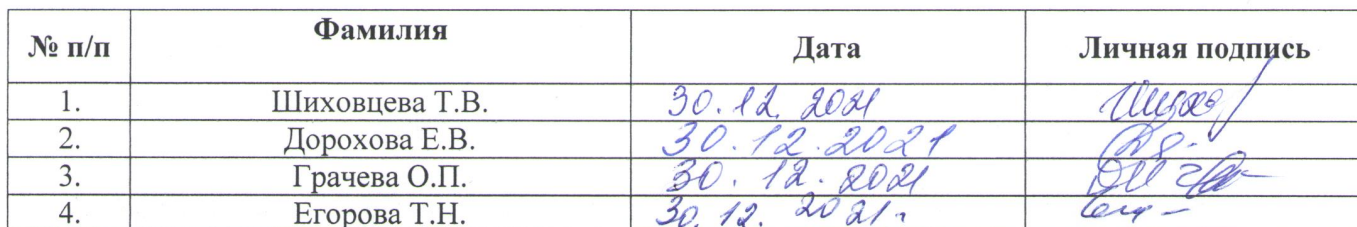 № п/п Фамилия Дата Личная подпись
1. Шиховцева Т.В. 30.12.2021
2. Дорохова Е.В. 30.12.2021
3. Грачева О.П. 30.12.2021
4. Егорова Т.Н. 30.12.2021.